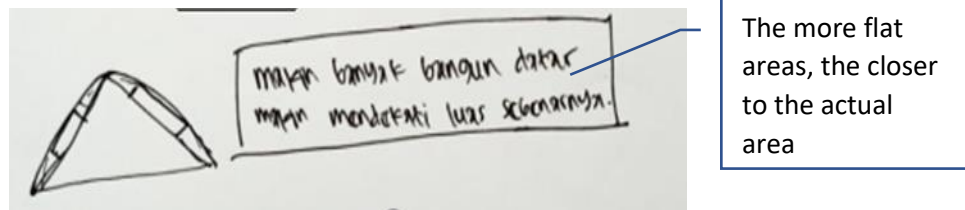 makin banyak bangun datar
makin mendekati luas sebenarnya.
The more flat
areas, the closer
to the actual
area